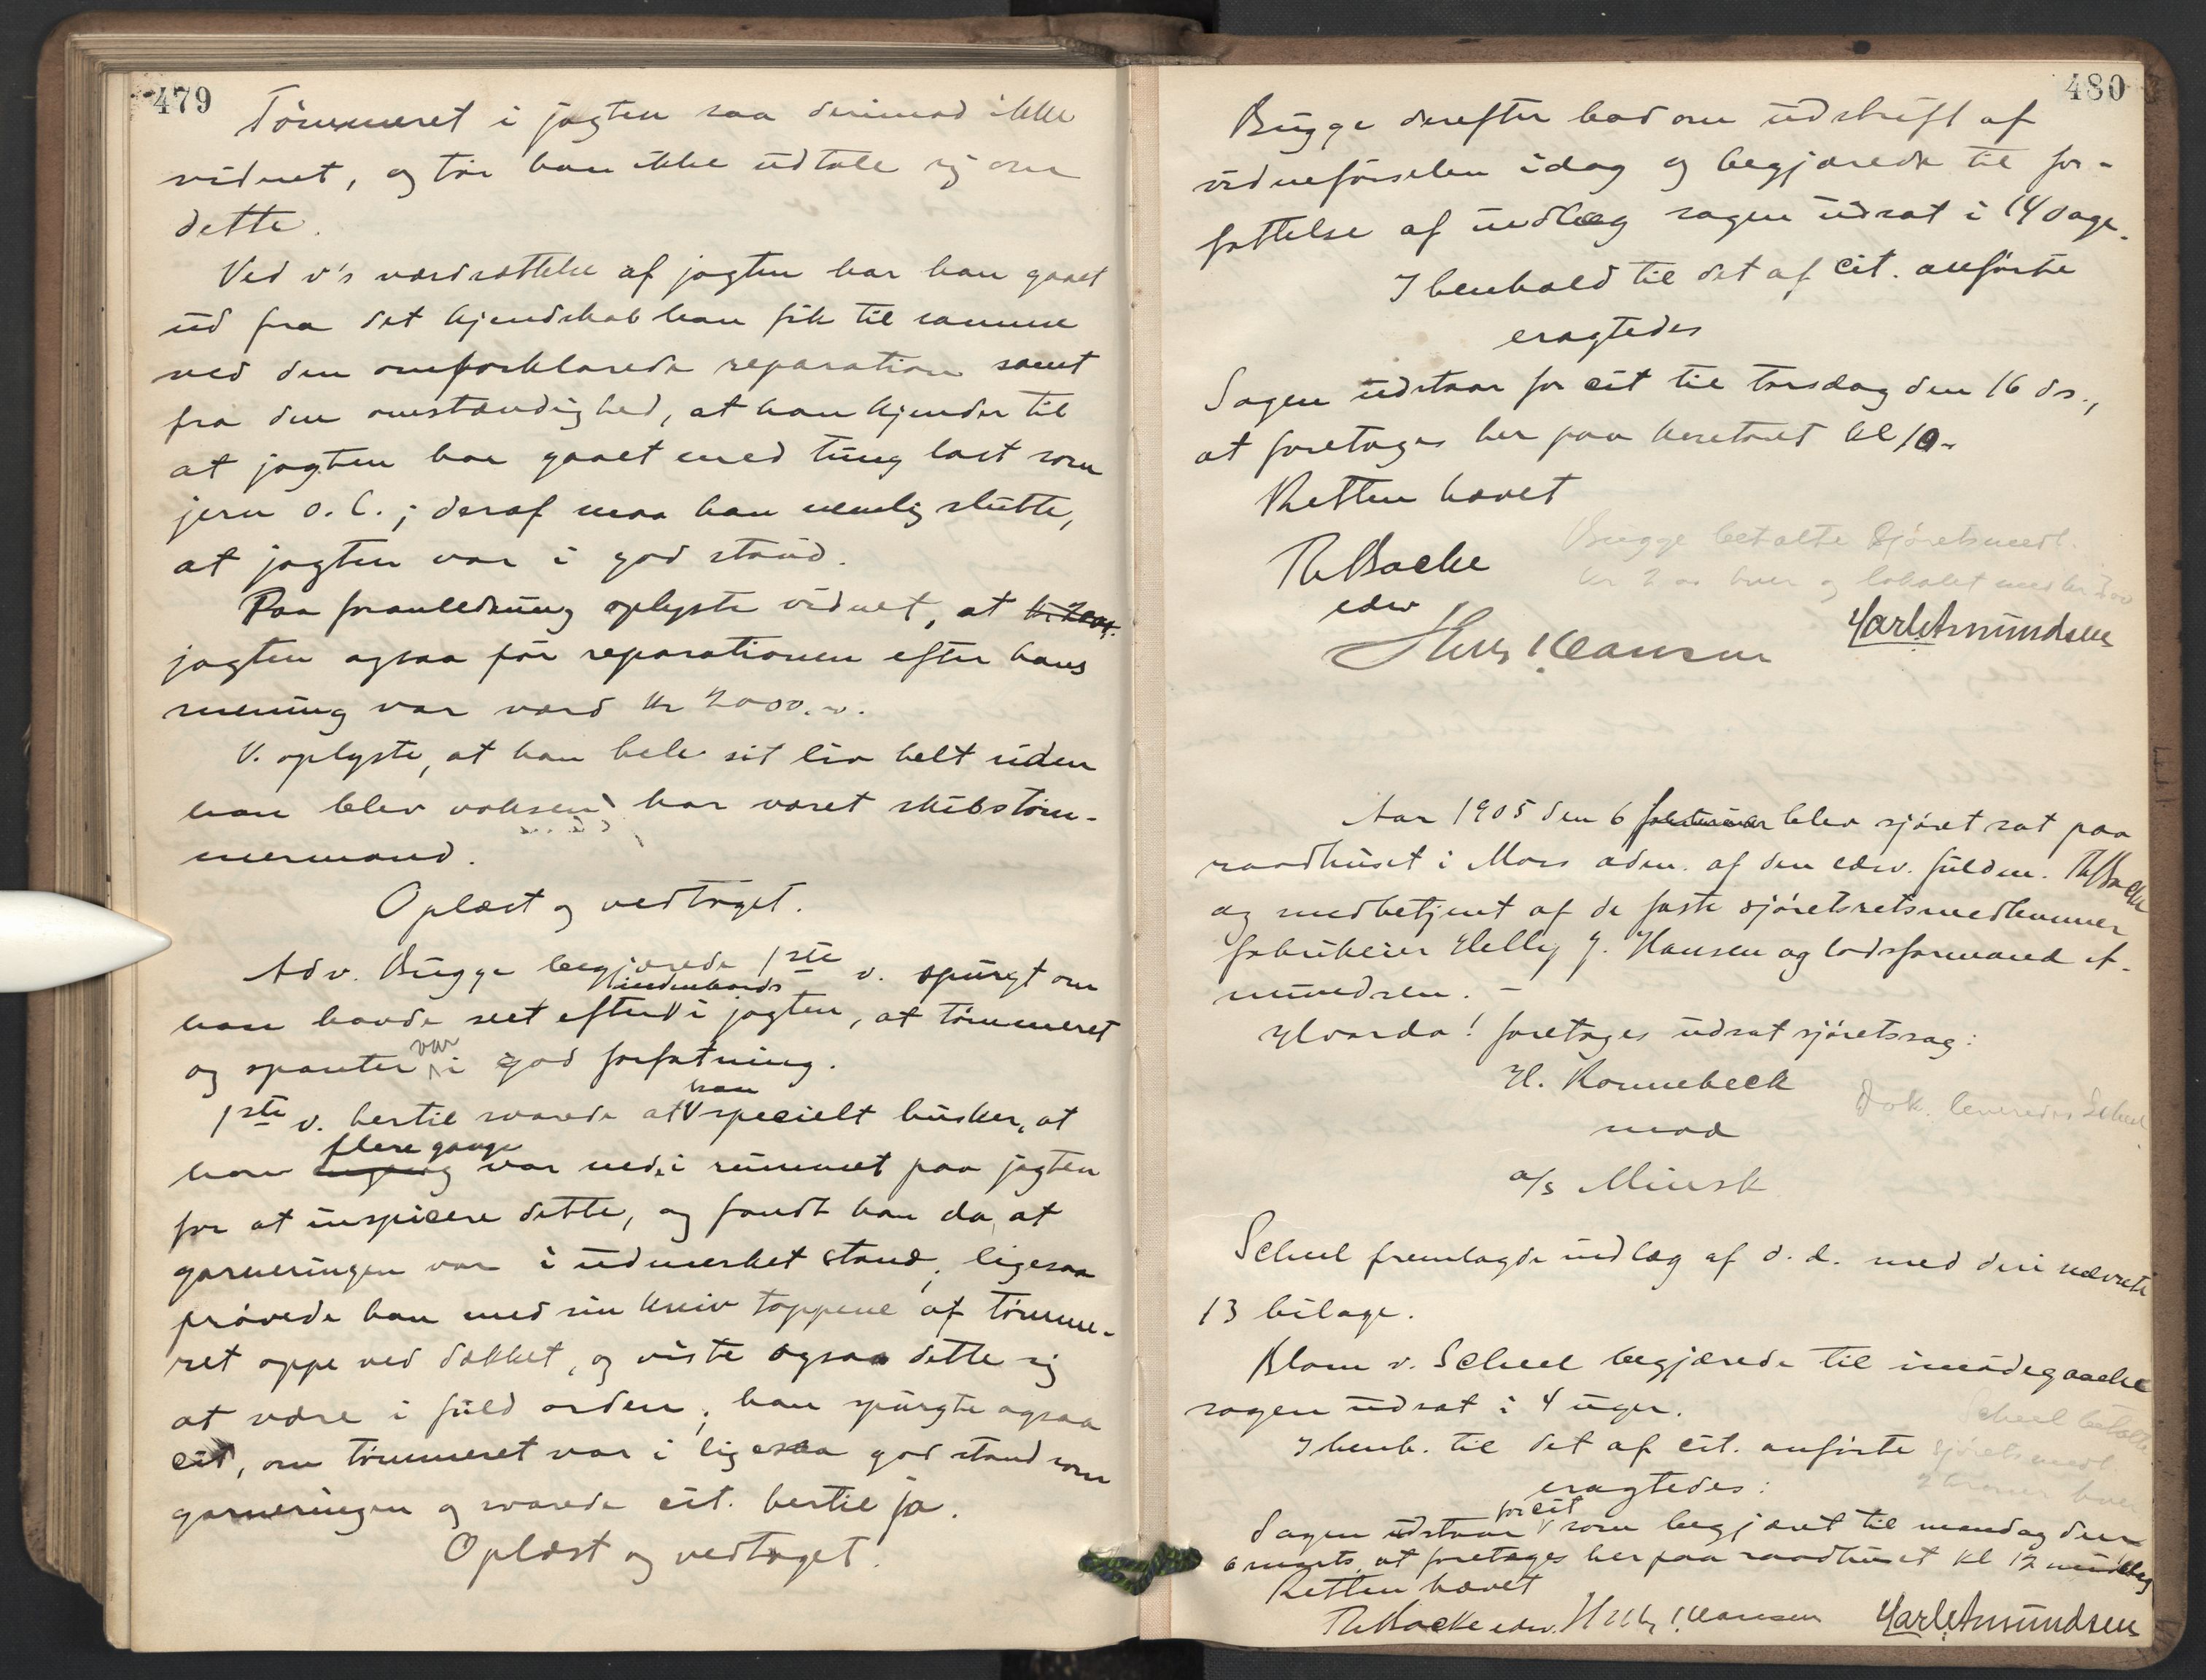 479
Tömmeret i jagten saa derimod ikke
vidnet, og tör han ikke udtale sig om
dette.
Ved v's værdsættelse af jagten har han gaaet
ud fra det kjendskab han fik til samme
ved den omforklarede reparation samt
fra den omstændighed, at han kjender til
at jagten har gaaet med tung last som
jern o. l.; deraf maa han nemlig slutte,
at jagten var i god stand.
Paa foranledning oplyste vidnet, at
jagten ogsaa för reparationen efter hans
mening var værd kr 2000.
V. oplyste, at han hele sit liv helt siden
han blev voksen har været skibstöm-
mermand.
Oplæst og vedtaget.
Adv. Bugge begjærede 1ste v. spurgt om
han havde seet efter indenbords i jagten, at tömmeret
og spanter var i god forfatning.
1ste v. hertil svarede at han specielt husker, at
han flere gange var nede i rummet paa jagten
for at inspicere dette, og fandt han da, at
garneringen var i udmerket stand; ligesaa
prövede han med sin kniv toppene af tömme-
ret oppe ved dækket, og viste ogsaa dette sig
at være i fuld orden; han spurgte ogsaa
cit, om tömmeret var i ligesaa god stand som
garneringen og svarede cit. hertil ja.
Oplæst og vedtaget.
480
Bugge derefter bad om udskrift af
vidneförselen idag og begjærede til for-
fattelse af indlæg sagen udsat i 14 dage.
I henhold til det af cit. anförte
eragtedes
Sagen udstaar for cit til torsdag den 16 ds.,
at foretages her paa kontoret kl 10.
Retten hævet
Th Backe
edsv
Helly J. Hansen
Karl Amundsen
Bugge betalte Sjöretsmedl
kr 2 00 hver og lokalet med kr
Aar 1905 den 6 februar blev sjöret sat paa
raadhuset i Moss adm. af den edsv. fuldm. Th Backe
og medbetjent af de faste sjöretsretsmedlemmer
fabrikeier Helly J. Hansen og lodsformand A-
mundsen. -
Hvorda! foretages udsat sjöretssag:
H. Ronnebeck
mod
a/s Minsk
Dok. leveredes Scheel
Scheel fremlagde indlæg af d. d. med deri nævnte
13 bilage.
Blom v. Scheel begjærede til imödegaaelse
sagen udsat i 4 uger.
I henh. til det af cit. anförte
eragtedes:
Scheel betalte
sjöretsmedl.
2 kroner hver
Sagen udstaar for cit som begjæret til mandag den
6 marts at foretages her paa raadhuset kl 12 middag
Retten hævet
Th Backe edsv. Helly J. Hansen Karl Amundsen